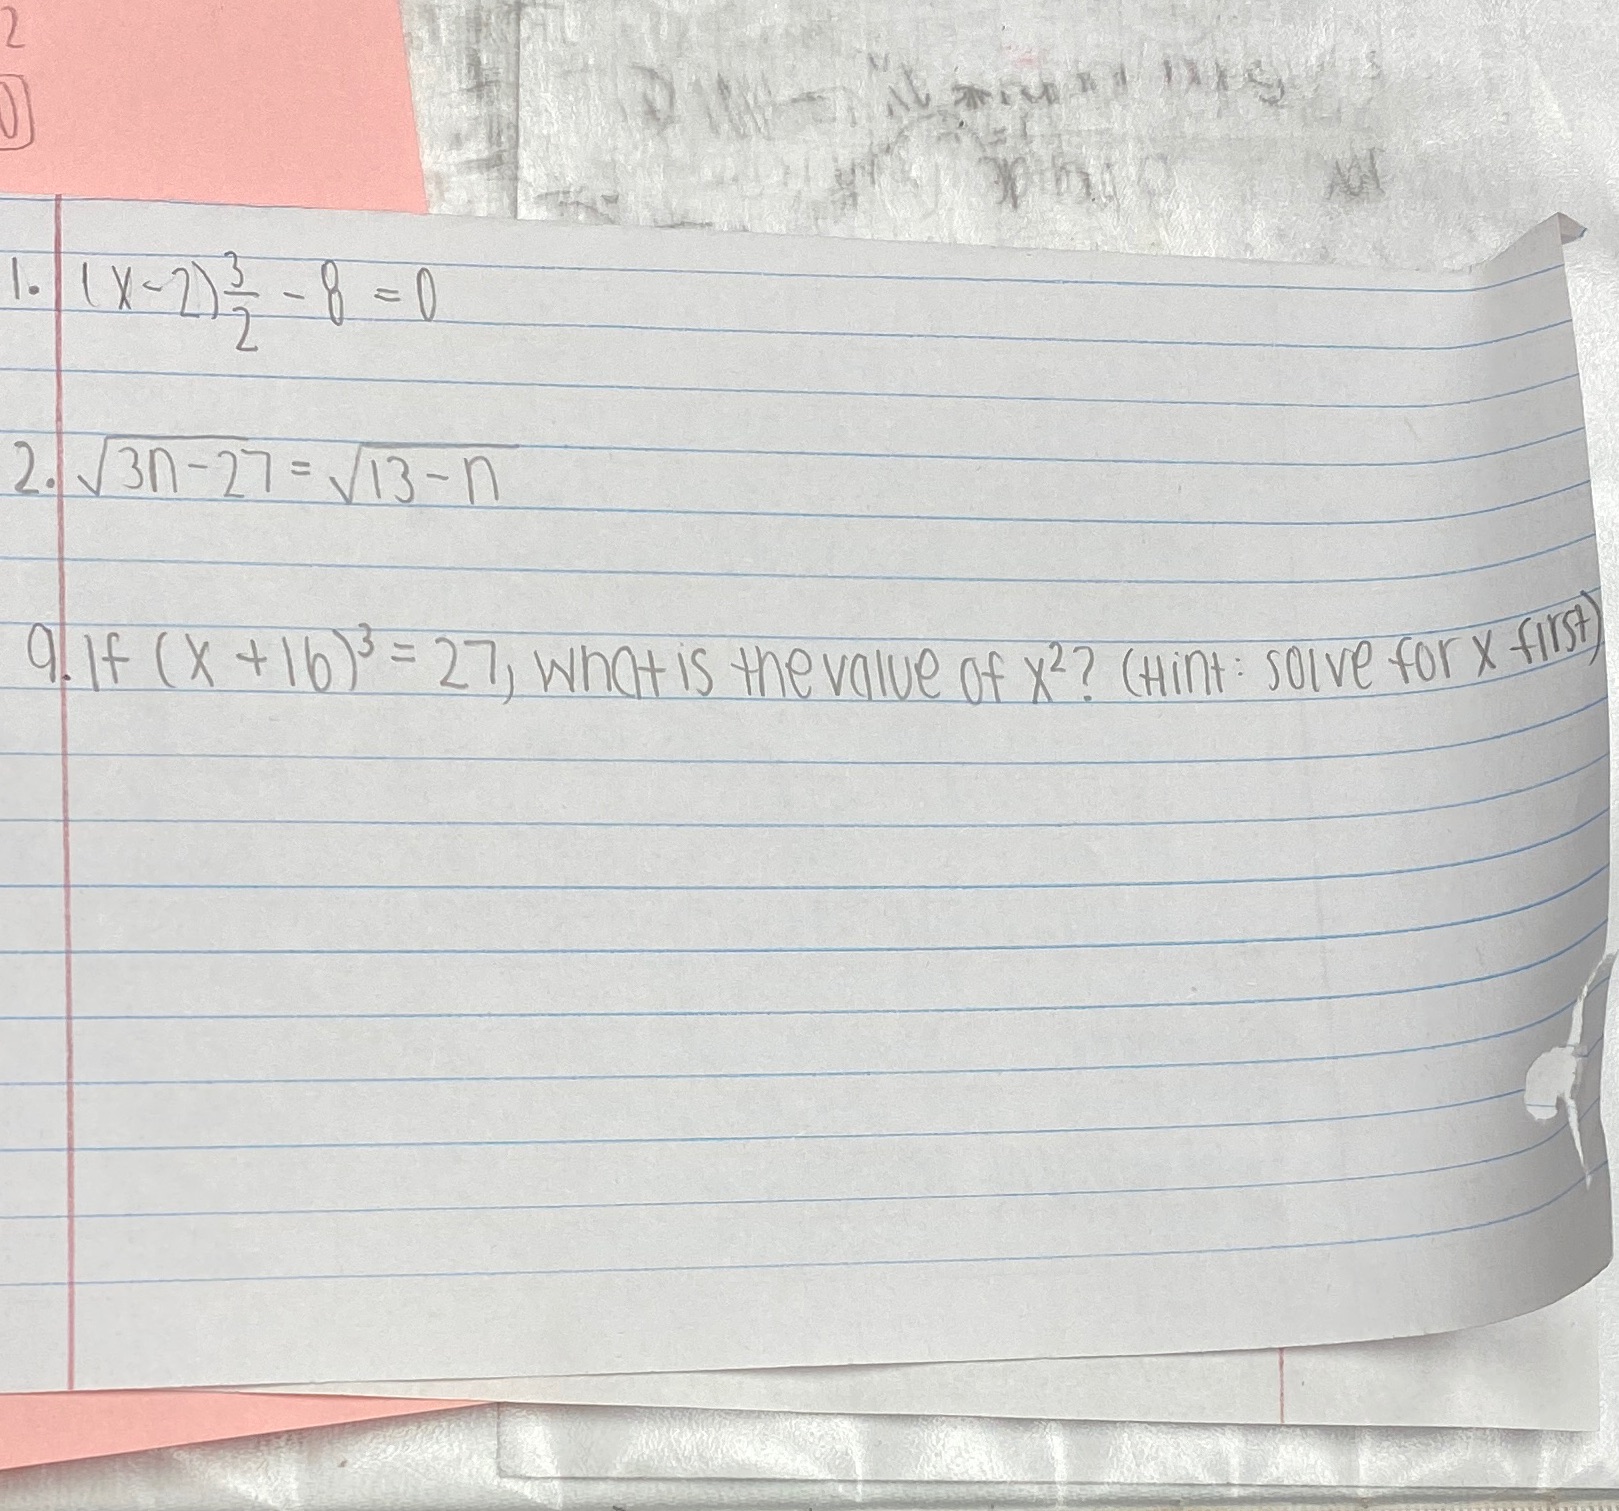 2
0
1. (x-2)3/2 - 8 = 0
2. √3n-27 = √13-n
9. If (x + 16)³ = 27, what is the value of x²? (Hint: solve for x first)